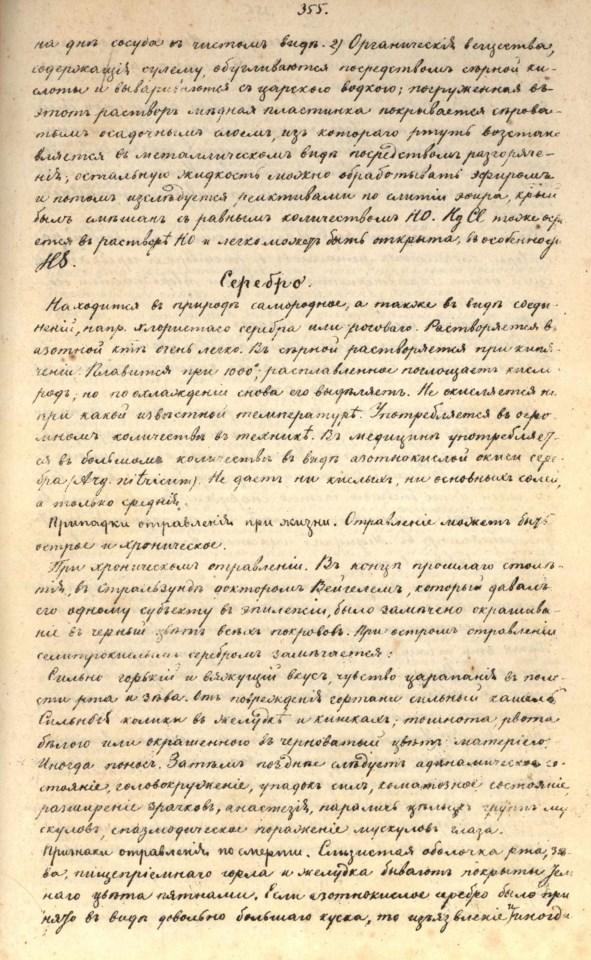 355.
на днѣ сосуда въ чистомъ видѣ. 2) Органическія вещества,
содержащія сулему, обугливаются посредствомъ сѣрной ки-
слоты и вывариваются съ царскою водкою; погруженная въ
этотъ растворъ мѣдная пластинка покрывается сѣрова-
тымъ осадочнымъ слоемъ, изъ котораго ртуть возстано
вляется въ металлическомъ видѣ посредствомъ разгоряче-
нія; остальную жидкость можно обработывать эфиромъ
и потомъ изслѣдуется реактивами по слитіи эфира, крый
былъ смѣшанъ съ равнымъ количествомъ HO. Hg Cl тоже
ется въ растворѣ HO и легко можетъ быть открыта, въ особенности
HS.
Серебро.
Находится въ природѣ самородное, а также въ видѣ соеди-
неній, напр. хлористаго серебра или роговаго. Растворяется въ
азотной ктѣ очень легко. Въ сѣрной растворяется при кипя-
ченіи. Плавится при 1000°; расплавленное поглощаетъ кисло
родъ, но по охлажденіи снова его выдѣляетъ. Не окисляется ни
при какой извѣстной температурѣ. Употребляется въ огро-
мномъ количествѣ въ техникѣ. Въ медицинѣ употребляет
ся въ большомъ количествѣ въ видѣ азотнокислой окиси сере-
бра (Arg. nitricum). Не даетъ ни кислыхъ, ни основныхъ солей,
а только среднія.
Припадки отравленія при жизни. Отравленіе можетъ быть
острое и хроническое.
При хроническомъ отравленіи. Въ концѣ прошлаго столѣ-
тія, въ Стральзундѣ докторомъ Вейгелемъ, который давалъ
его одному субъекту въ эпилепсіи, было замѣчено окрашива-
ніе въ черный цвѣтъ всѣхъ покрововъ. При остромъ отравленіи
селитрокислымъ серебромъ замѣчается:
Сильно горькій и вяжущій вкусъ, чувство царапанія въ поло-
сти рта и зѣва. Отъ поврежденія гортани сильный кашель.
Сильныя колики въ желудкѣ и кишкахъ; тошнота рвота
бѣлою или окрашенною въ черноватый цвѣтъ матеріею.
Иногда поносъ. Затѣмъ позднѣе слѣдуетъ адинамическое со-
стояніе, головокруженіе, упадокъ силъ, коматозное состояніе,
расширеніе зрачковъ, анастезія, параличъ цѣлыхъ группъ му-
скуловъ, спазмодическое пораженіе мускуловъ глаза.
Признаки отравленія по смерти. Слизистая оболочка рта, зѣ-
ва, пищепріемнаго горла и желудка бываютъ покрыты
наго цвѣта пятнами. Если азотнокислое серебро было при
нято въ видѣ довольно большаго куска, то изъязвленіе и иногда